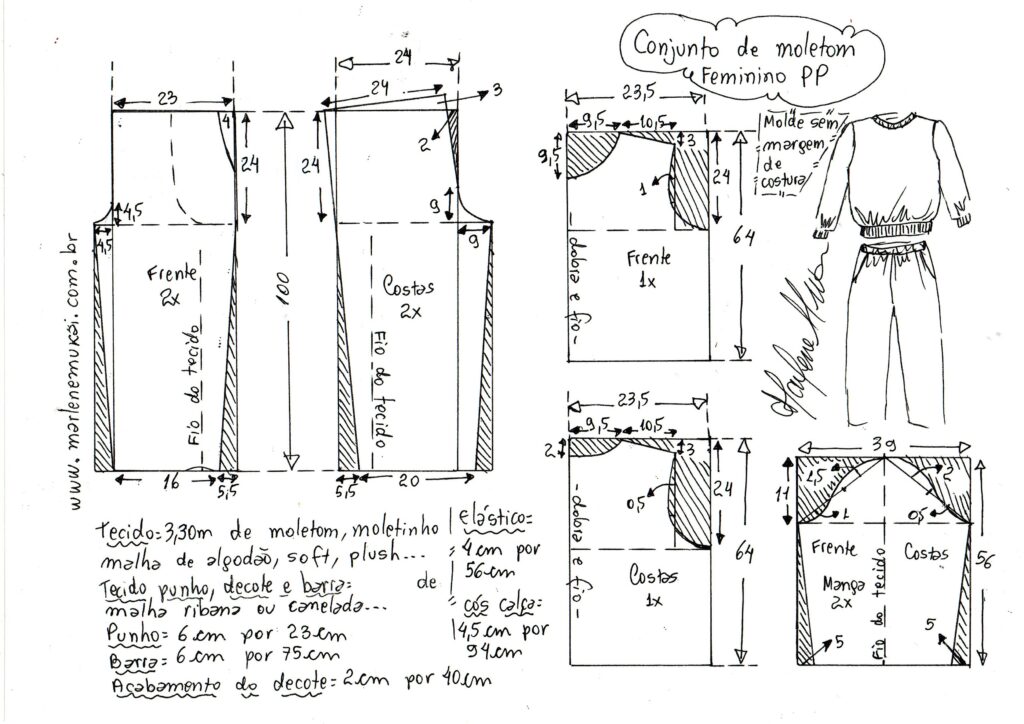 Conjunto de moletom
Feminino PP
Molde sem
margem
de
costura
www.marlenemukai.com.br
23
4
24
4,5
4,5
Frente
2x
Fio do tecido
16
5,5
100
24
24
3
2
24
9
9
Costas
2x
Fio do tecido
5,5
20
23,5
9,5
10,5
9,5
3
1
24
64
- dobra e fio -
Frente
1x
23,5
9,5
10,5
2
3
0,5
24
64
- dobra e fio -
Costas
1x
39
11
1,5
2
1
0,5
Frente
Costas
Manga
2x
Fio do tecido
56
5
5
Tecido = 3,30m de moletom, moletinho
malha de algodão, soft, plush...
Tecido punho, decote e barra = de
malha ribana ou canelada...
Punho = 6 cm por 23 cm
Barra = 6 cm por 75 cm
Acabamento do decote = 2 cm por 40 cm
elástico =
= 4 cm por
56 cm
cós calça =
4,5 cm por
94 cm